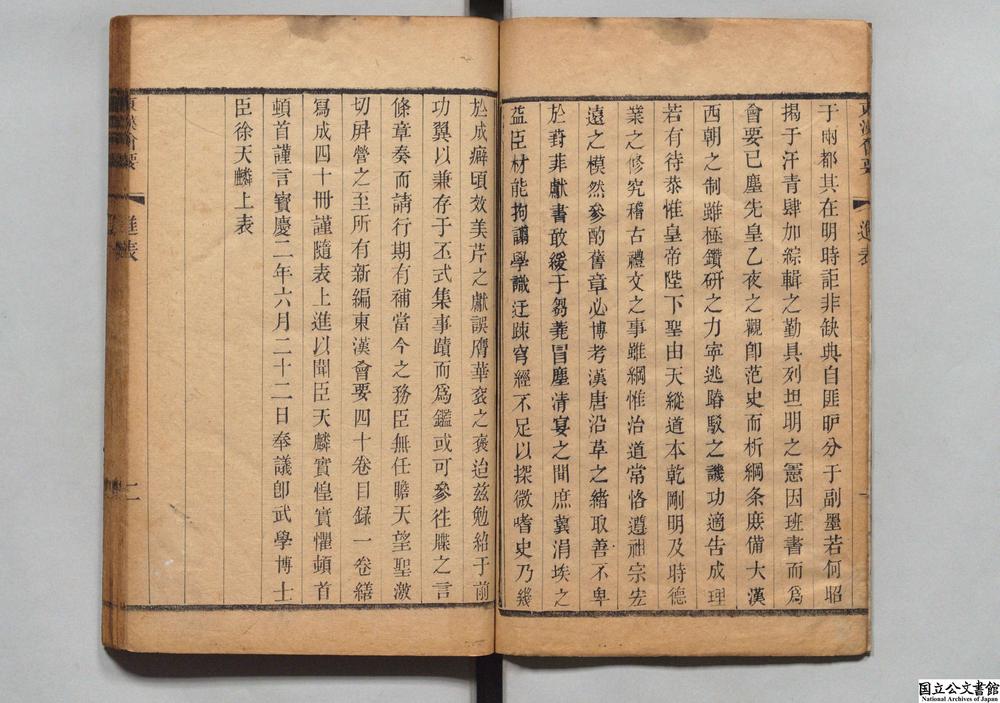 東漢會要 進表
于兩都其在明時詎非缺典自匪昈分于副墨若何昭
揭于汗青肆加綜輯之勤具列坦明之憲因班書而爲
會要已塵先皇乙夜之觀卽范史而析綱条庶備大漢
西朝之制雖極鑽研之力寧逃踳駁之譏功適告成理
若有待恭惟皇帝陛下聖由天縱道本乾剛明及時德
業之修究稽古禮文之事雖綱惟治道常恪遵祖宗宏
遠之模然參酌舊章必博考漢唐沿革之緒取善不卑
於葑菲獻書敢緩于芻蕘冒塵清宴之間庶冀涓埃之
益臣材能拘謭學識迂疎窮經不足以探微嗜史乃幾
於成癖頃效美芹之獻誤膺華衮之褒迨茲勉紹于前
功翼以兼存于丕式集事蹟而爲鑑或可參往牒之言
條章奏而請行期有補當今之務臣無任瞻天望聖激
切屏營之至所有新編東漢會要四十卷目録一卷繕
寫成四十冊謹隨表上進以聞臣天麟實惶實懼頓首
頓首謹言寳慶二年六月二十二日奉議郎武學博士
臣徐天麟上表
東漢會要 進表 二
国立公文書館
National Archives of Japan